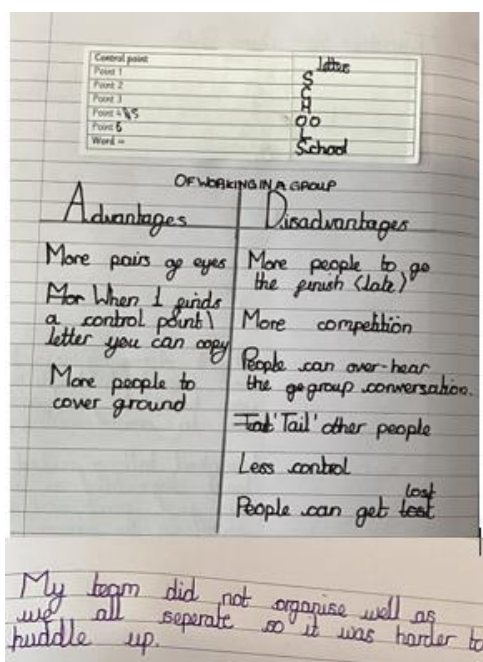 Control point letters
Point 1 S
Point 2 C
Point 3 H
Point 4 & 5 OO
Point 6 L
Word = School
OF WORKING IN A GROUP
Advantages
More pairs of eyes
Mor When 1 finds
a control point \
letter you can copy
More people to
cover ground
Disadvantages
More people to go
the finish (late)
More competition
People can over-hear
the gegroup conversation.
'Tail' other people
Less control
lost
People can get lest
My team did not organise well as
we all seperate so it was harder to
huddle up.